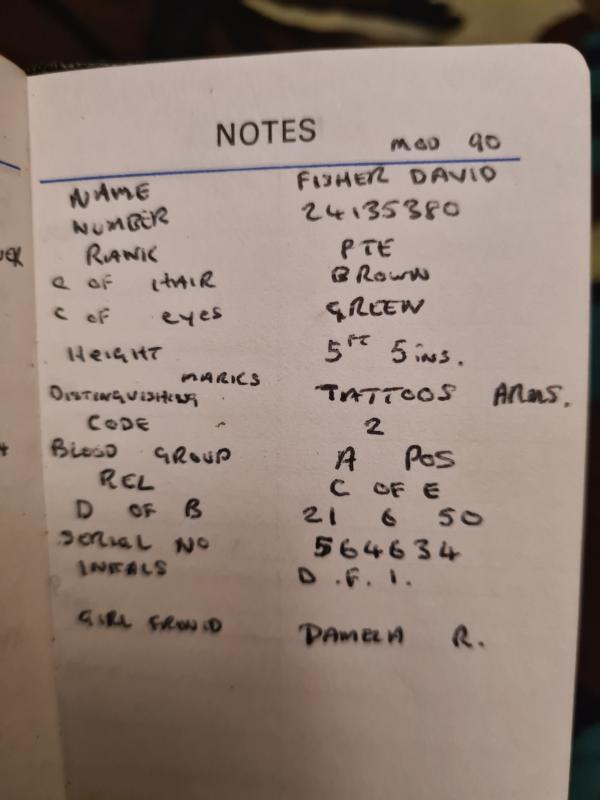 NOTES
MOD 90
NAME FISHER DAVID
NUMBER 24135380
RANK PTE
C OF HAIR BROWN
C OF EYES GREEN
HEIGHT 5FT 5INS.
MARKS
DISTINGUISHING TATTOOS ARMS.
CODE 2
BLOOD GROUP A POS
REL C OF E
D OF B 21 6 50
SERIAL NO 564634
INITALS D.F.I.
GIRL FRONID PAMELA R.